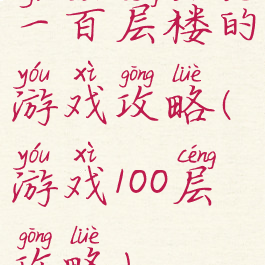 一百层楼的
yóu xì gōng lüè
游戏攻略(
yóu xì céng
游戏100层
gōng lüè
攻略)